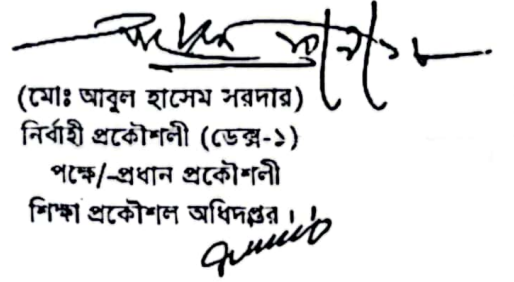 (মোঃ আবুল হাসেম সরদার)
নির্বাহী প্রকৌশলী (ডেক্স-১)
পক্ষে/-প্রধান প্রকৌশলী
শিক্ষা প্রকৌশল অধিদপ্তর।